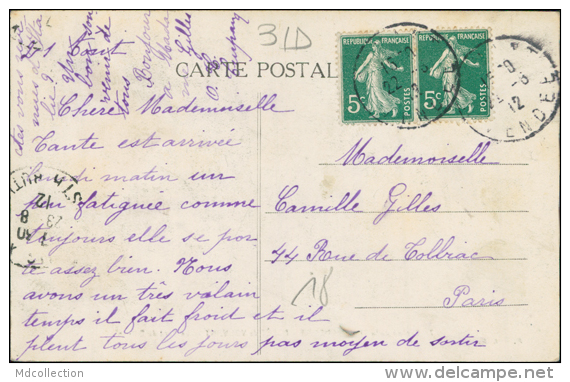 31D
CARTE POSTAL
REPUBLIQUE FRANÇAISE
5c
REPUBLIQUE FRANÇAISE
5c
21 Aout
Chère Mademoiselle
Tante est arrivée
lundi matin un
peu fatiguée comme
toujours elle se por
te assez bien. Nous
avons un très vilain
temps il fait froid et il
pleut tous les jours pas moyen de sortir
Mademoiselle
Camille Gilles
44 Rue de Tolbiac
Paris
18
bon sou
venir de
tous
Bonjour
à Made
Gilles
Mdcollection
delcampe.net